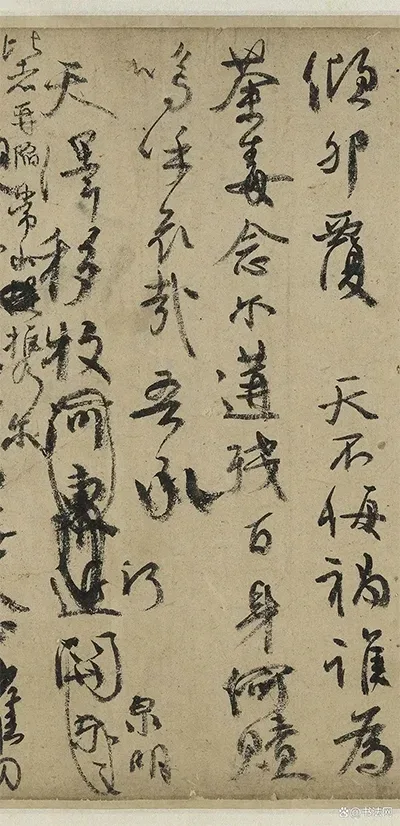 傾卵覆 天不悔禍誰為
荼毒念尔遘殘百身何贖
嗚呼哀哉吾承
天澤移牧
泉明
比者再陷常攜尔
@书法网